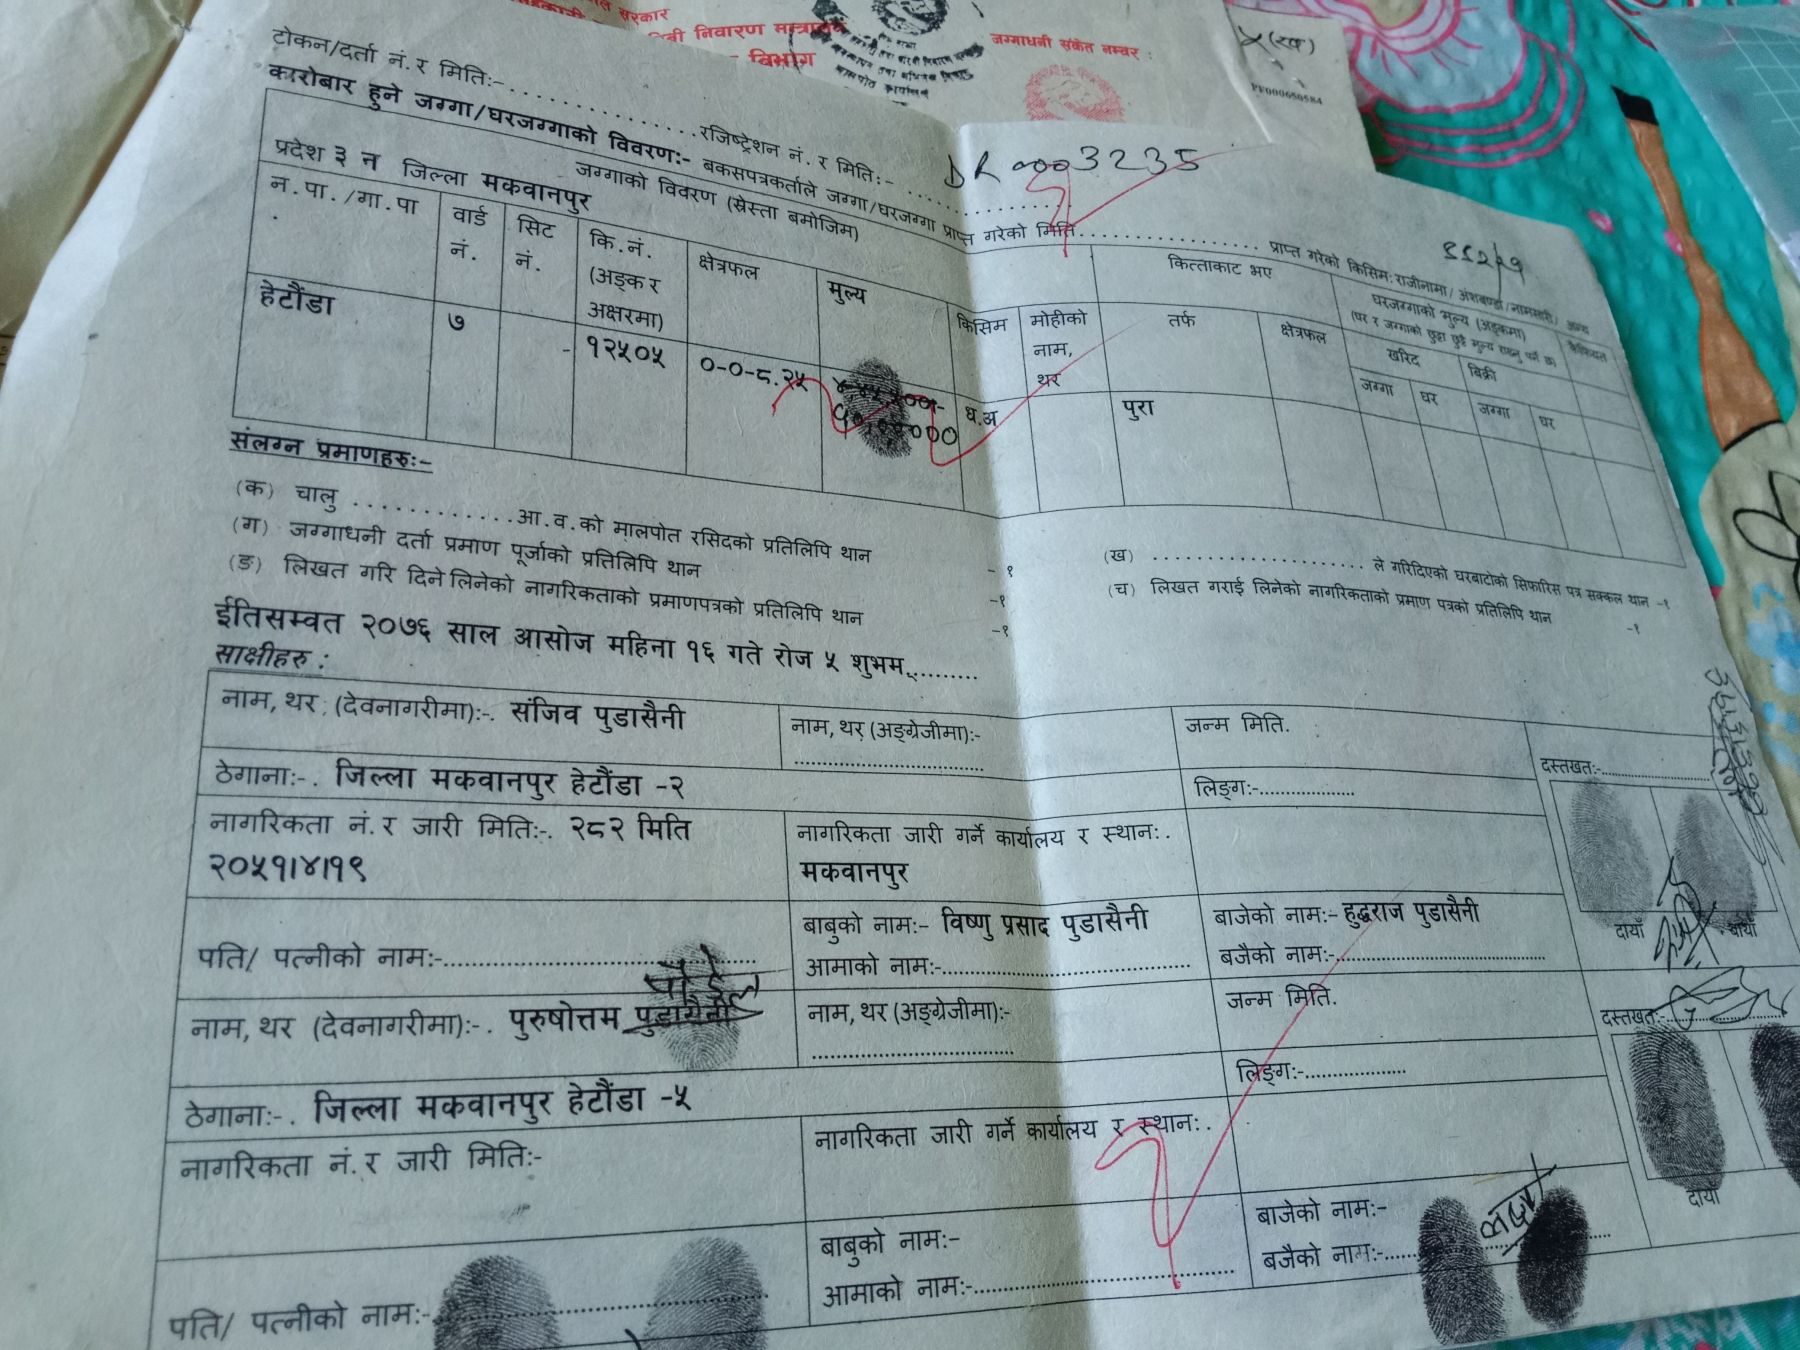 सरकार
जग्गाधनी संकेत नम्बर :
विभाग
५(ख)
PF000650584
टोकन/दर्ता नं.र मिति:-
रजिष्ट्रेशन नं. र मिति:-
DR 0003235
कारोबार हुने जग्गा/घरजग्गाको विवरण:- बकसपत्रकर्ताले जग्गा/घरजग्गा प्राप्त गरेको मिति............... प्राप्त गरेको किसिम:राजीनामा/ अंशबण्डा/नामसारी/ अन्य
प्रदेश ३ न जिल्ला मकवानपुर जग्गाको विवरण (स्रेस्ता बमोजिम)
कित्ताकाट भए
घरजग्गाको मुल्य (अङ्कमा)
(घर र जग्गाको छुट्टा छुट्टै मुल्य राख्नु पर्ने छ)
कैफियत
न.पा./गा.पा. वार्ड नं. सिट नं. कि.नं. (अङ्क र अक्षरमा) क्षेत्रफल मुल्य किसिम मोहीको नाम, थर तर्फ क्षेत्रफल खरिद बिक्री
जग्गा घर जग्गा घर
हेटौंडा ७ - १२५०५ ०-०-८.२५ ध.अ पुरा
संलग्न प्रमाणहरु:-
(क) चालु ............आ.व.को मालपोत रसिदको प्रतिलिपि थान -१
(ख) .................... ले गरिदिएको घरबाटोको सिफारिस पत्र सक्कल थान -१
(ग) जग्गाधनी दर्ता प्रमाण पूर्जाको प्रतिलिपि थान -१
(ङ) लिखत गरि दिने लिनेको नागरिकताको प्रमाणपत्रको प्रतिलिपि थान -१
(च) लिखत गराई लिनेको नागरिकताको प्रमाण पत्रको प्रतिलिपि थान -१
ईतिसम्वत २०७६ साल आसोज महिना १६ गते रोज ५ शुभम्.........
साक्षीहरु :
नाम, थर (देवनागरीमा):-. संजिव पुडासैनी
नाम, थर (अङ्ग्रेजीमा):-
जन्म मिति.
दस्तखत:-
ठेगाना:-. जिल्ला मकवानपुर हेटौंडा -२
लिङ्ग:-
नागरिकता नं.र जारी मिति:-. २८२ मिति
२०५१।४।१९
नागरिकता जारी गर्ने कार्यालय र स्थान:.
मकवानपुर
दायाँ बायाँ
पति/ पत्नीको नाम:-
बाबुको नाम:- विष्णु प्रसाद पुडासैनी
आमाको नाम:-
बाजेको नाम:- हुद्धराज पुडासैनी
बजैको नाम:-
पौडेल
नाम, थर (देवनागरीमा):-. पुरुषोत्तम पुडासैनी
नाम, थर (अङ्ग्रेजीमा):-
जन्म मिति.
दस्तखत:-
ठेगाना:-. जिल्ला मकवानपुर हेटौंडा -५
लिङ्ग:-
नागरिकता नं.र जारी मिति:-
नागरिकता जारी गर्ने कार्यालय र स्थान:.
दायाँ
पति/ पत्नीको नाम:-
बाबुको नाम:-
आमाको नाम:-
बाजेको नाम:-
बजैको नाम:-